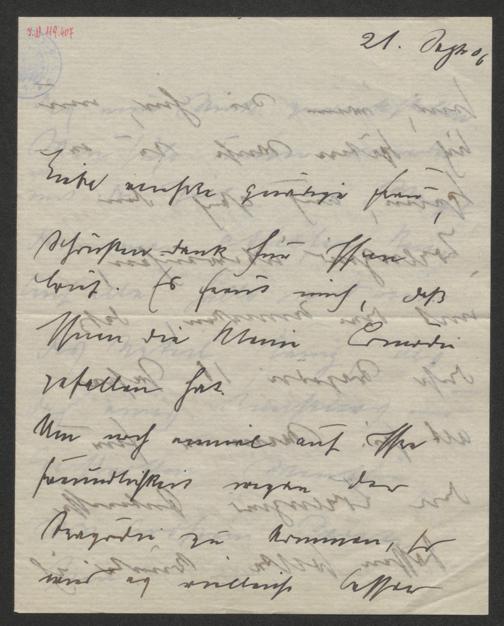 21. Sept 06
Liebe verehrte gnädige Frau,
Schönsten Dank für Ihren
Brief. Es freut mich, daß
Ihnen die kleine Comödie
gefallen hat.
Um noch einmal auf Ihre
Freundlichkeit wegen der
Tragödie zu kommen, so
wird es vielleicht besser